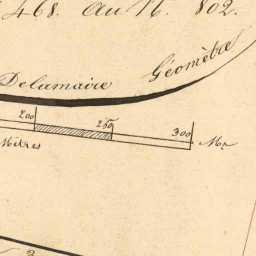 468. Au N. 802.
Delamaire Géomètre
200 250 300
Mètres